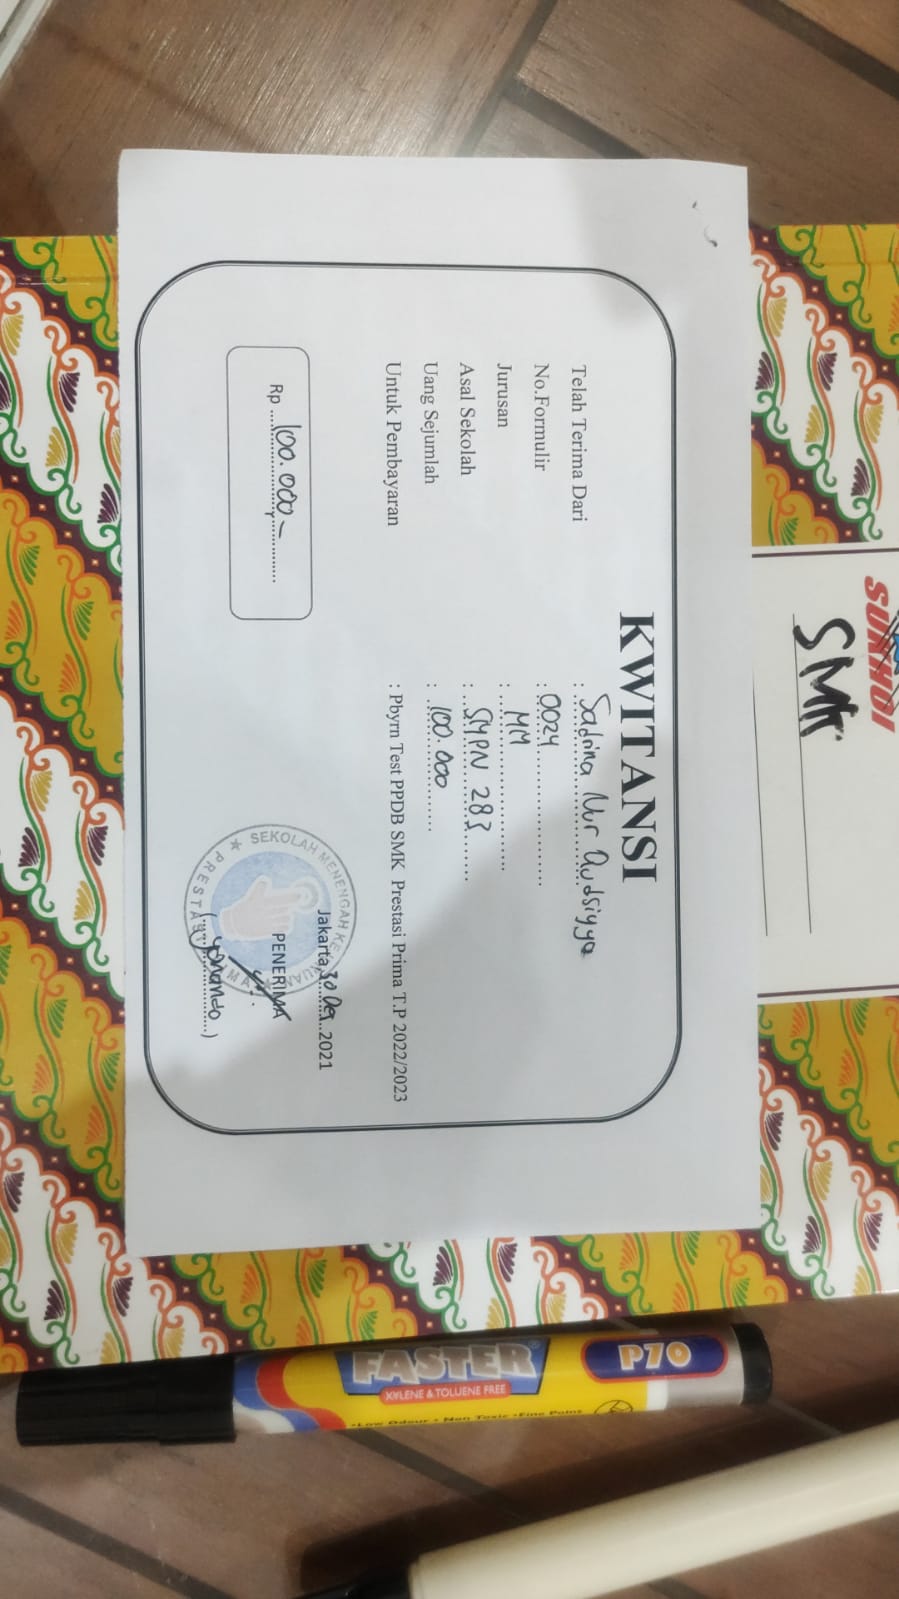 KWITANSI
Telah Terima Dari : Sabrina Nur Qudsiyya
No.Formulir : 0024
Jurusan : MM
Asal Sekolah : SMPN 283
Uang Sejumlah : 100.000
Untuk Pembayaran : Pbyrn Test PPDB SMK Prestasi Prima T.P 2022/2023
Jakarta, 30 Des 2021
PENERIMA
Rp 100.000-
(Yonando)
SEKOLAH MENENGAH KEJURUAN
PRESTASI PRIMA
SUKHOI
SMK
FASTER
XYLENE & TOLUENE FREE
•Low Odour • Non Toxic •Fine Point
P70